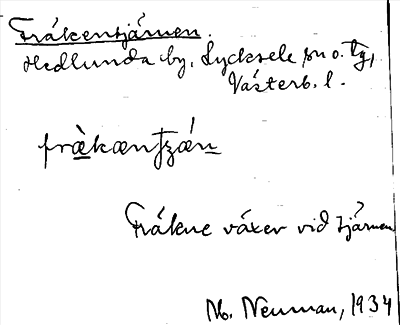 Fräkentjärnen.
Hedlunda by, Lycksele sn o. tg,
Västerb. l.
fræ̀kæntʐǽn
Fräkne växer vid tjärnen
M. Neuman, 1934